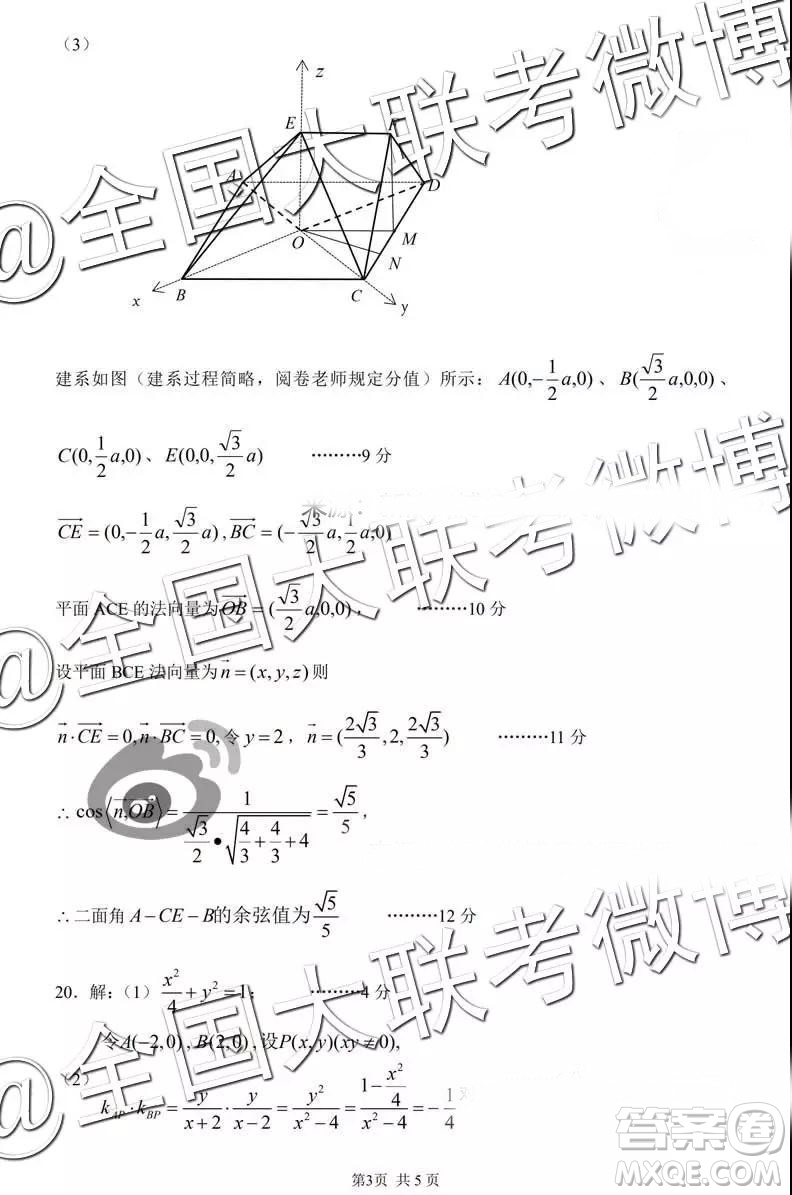 （3）
z
E
F
A
D
O
M
N
B
C
x
y
建系如图（建系过程简略，阅卷老师规定分值）所示：A(0,-\frac{1}{2}a,0)、B(\frac{\sqrt{3}}{2}a,0,0)、
C(0,\frac{1}{2}a,0)、E(0,0,\frac{\sqrt{3}}{2}a) ………9 分
\overrightarrow{CE}=(0,-\frac{1}{2}a,\frac{\sqrt{3}}{2}a),\overrightarrow{BC}=(-\frac{\sqrt{3}}{2}a,\frac{1}{2}a,0)
平面 ACE 的法向量为\overrightarrow{OB}=(\frac{\sqrt{3}}{2}a,0,0)， ………10 分
设平面 BCE 法向量为\vec{n}=(x,y,z)则
\vec{n}·\overrightarrow{CE}=0,\vec{n}·\overrightarrow{BC}=0,令 y=2，\vec{n}=(\frac{2\sqrt{3}}{3},2,\frac{2\sqrt{3}}{3}) ………11 分
∴cos⟨\vec{n},\overrightarrow{OB}⟩=\frac{1}{\frac{\sqrt{3}}{2}•\sqrt{\frac{4}{3}+\frac{4}{3}+4}}=\frac{\sqrt{5}}{5}，
∴二面角 A-CE-B的余弦值为\frac{\sqrt{5}}{5} ………12 分
20．解：（1）\frac{x^2}{4}+y^2=1; ………4 分
令A(-2,0),B(2,0),设P(x,y)(xy≠0),
（2）
k_{AP}·k_{BP}=\frac{y}{x+2}·\frac{y}{x-2}=\frac{y^2}{x^2-4}=\frac{1-\frac{x^2}{4}}{x^2-4}=-\frac{1}{4}
第3页 共 5 页
@全国大联考微博
@全国大联考微博
@全国大联考微博
答案卷
MXQE.COM